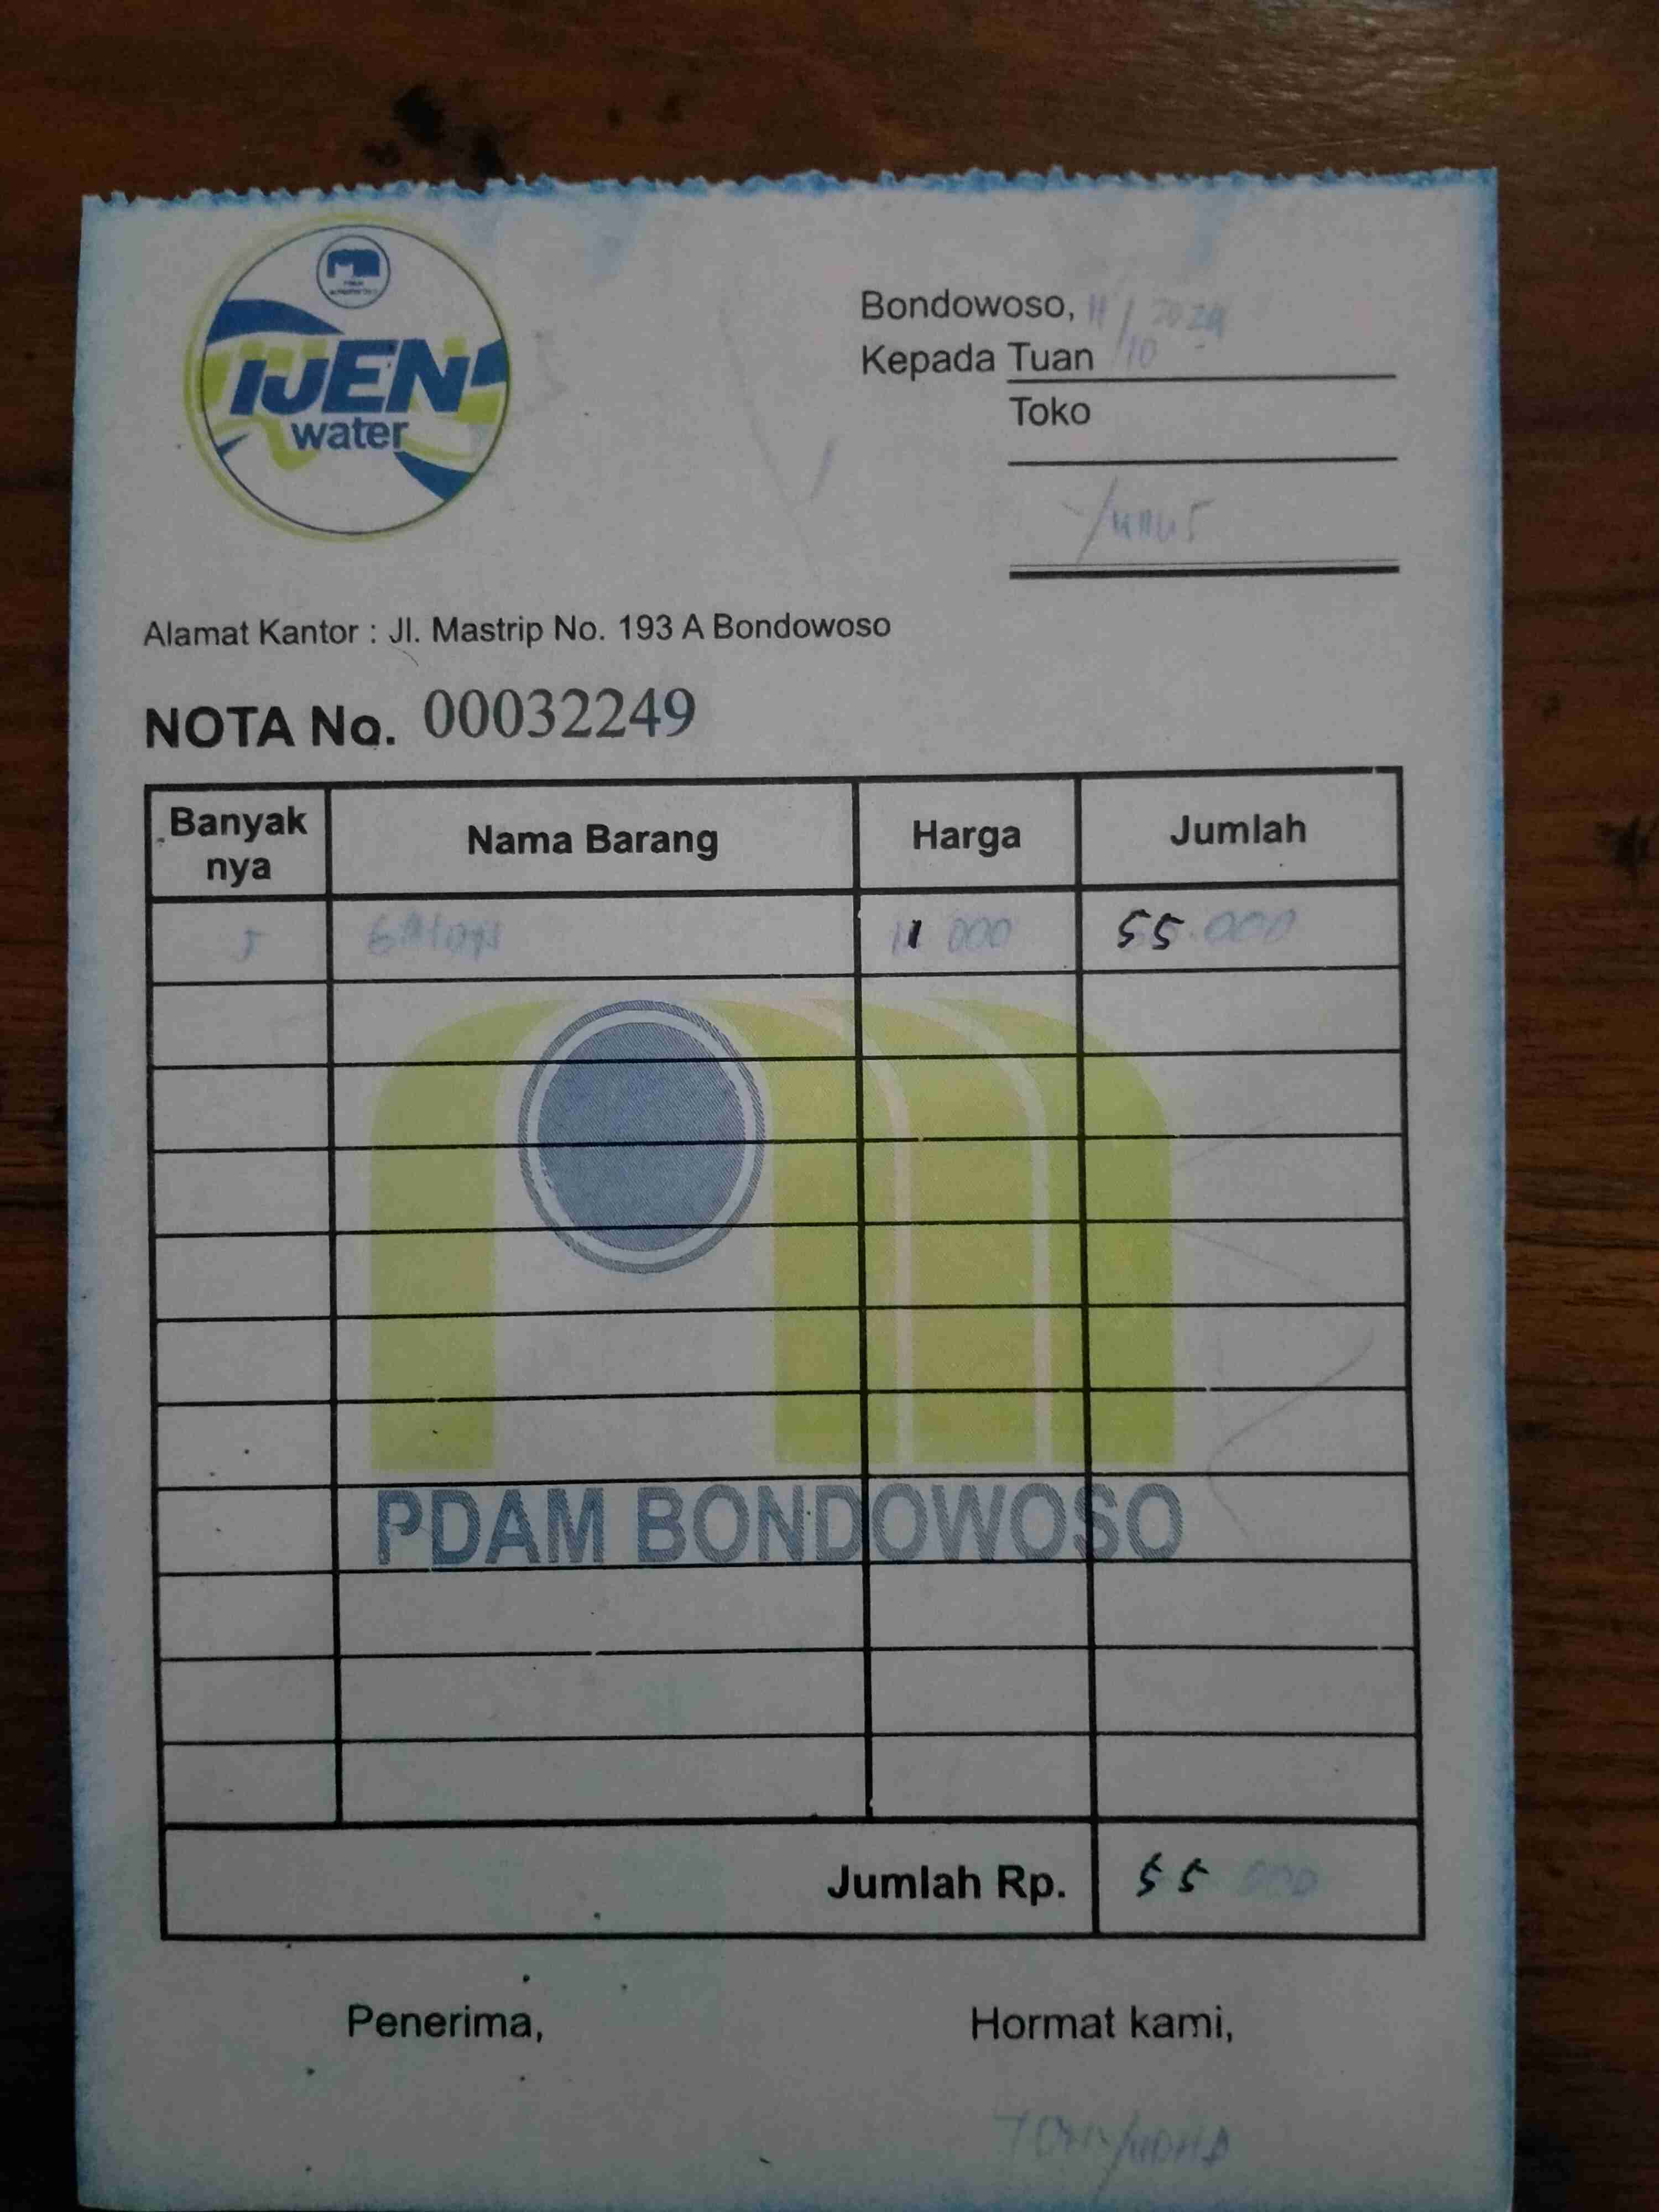 IJEN
water
Bondowoso, 11/10 2024
Kepada Tuan
Toko
Yunus
Alamat Kantor : Jl. Mastrip No. 193 A Bondowoso
NOTA No. 00032249
Banyak nya Nama Barang Harga Jumlah
5 Galon 11 000 55.000
PDAM BONDOWOSO
Jumlah Rp. 55 000
Penerima, Hormat kami,